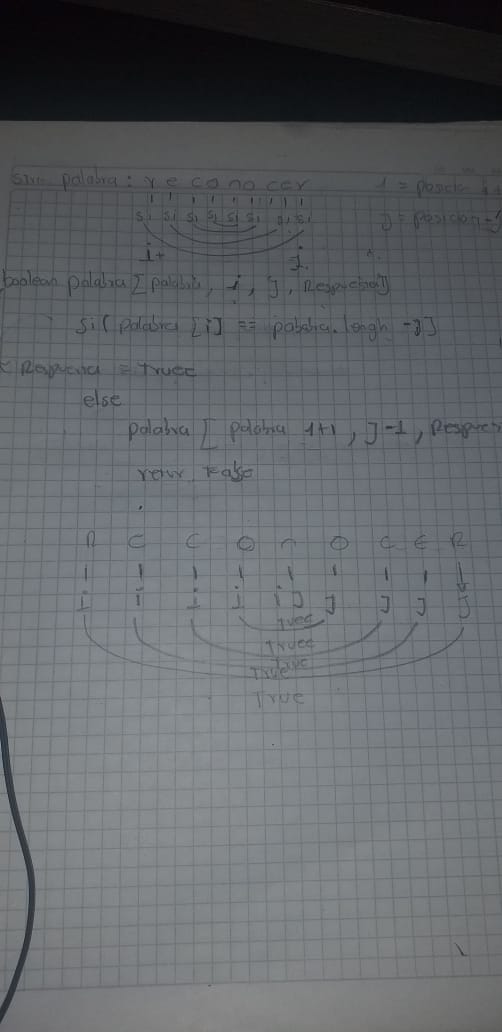 palabra: reconocer 1 = posición i
si si si si si si si si J = posicion - J
i+ j.
boolean palabra [palabra, i, J, Respuesta]
si( palabra [i] == palabra.lengh -J]
Respuesta = truee
else
palabra [ palabra 1+1, J-1, Respuest
False
R E C O n O C E R
i i i i i J J J J J
truee
Truee
True
True
True